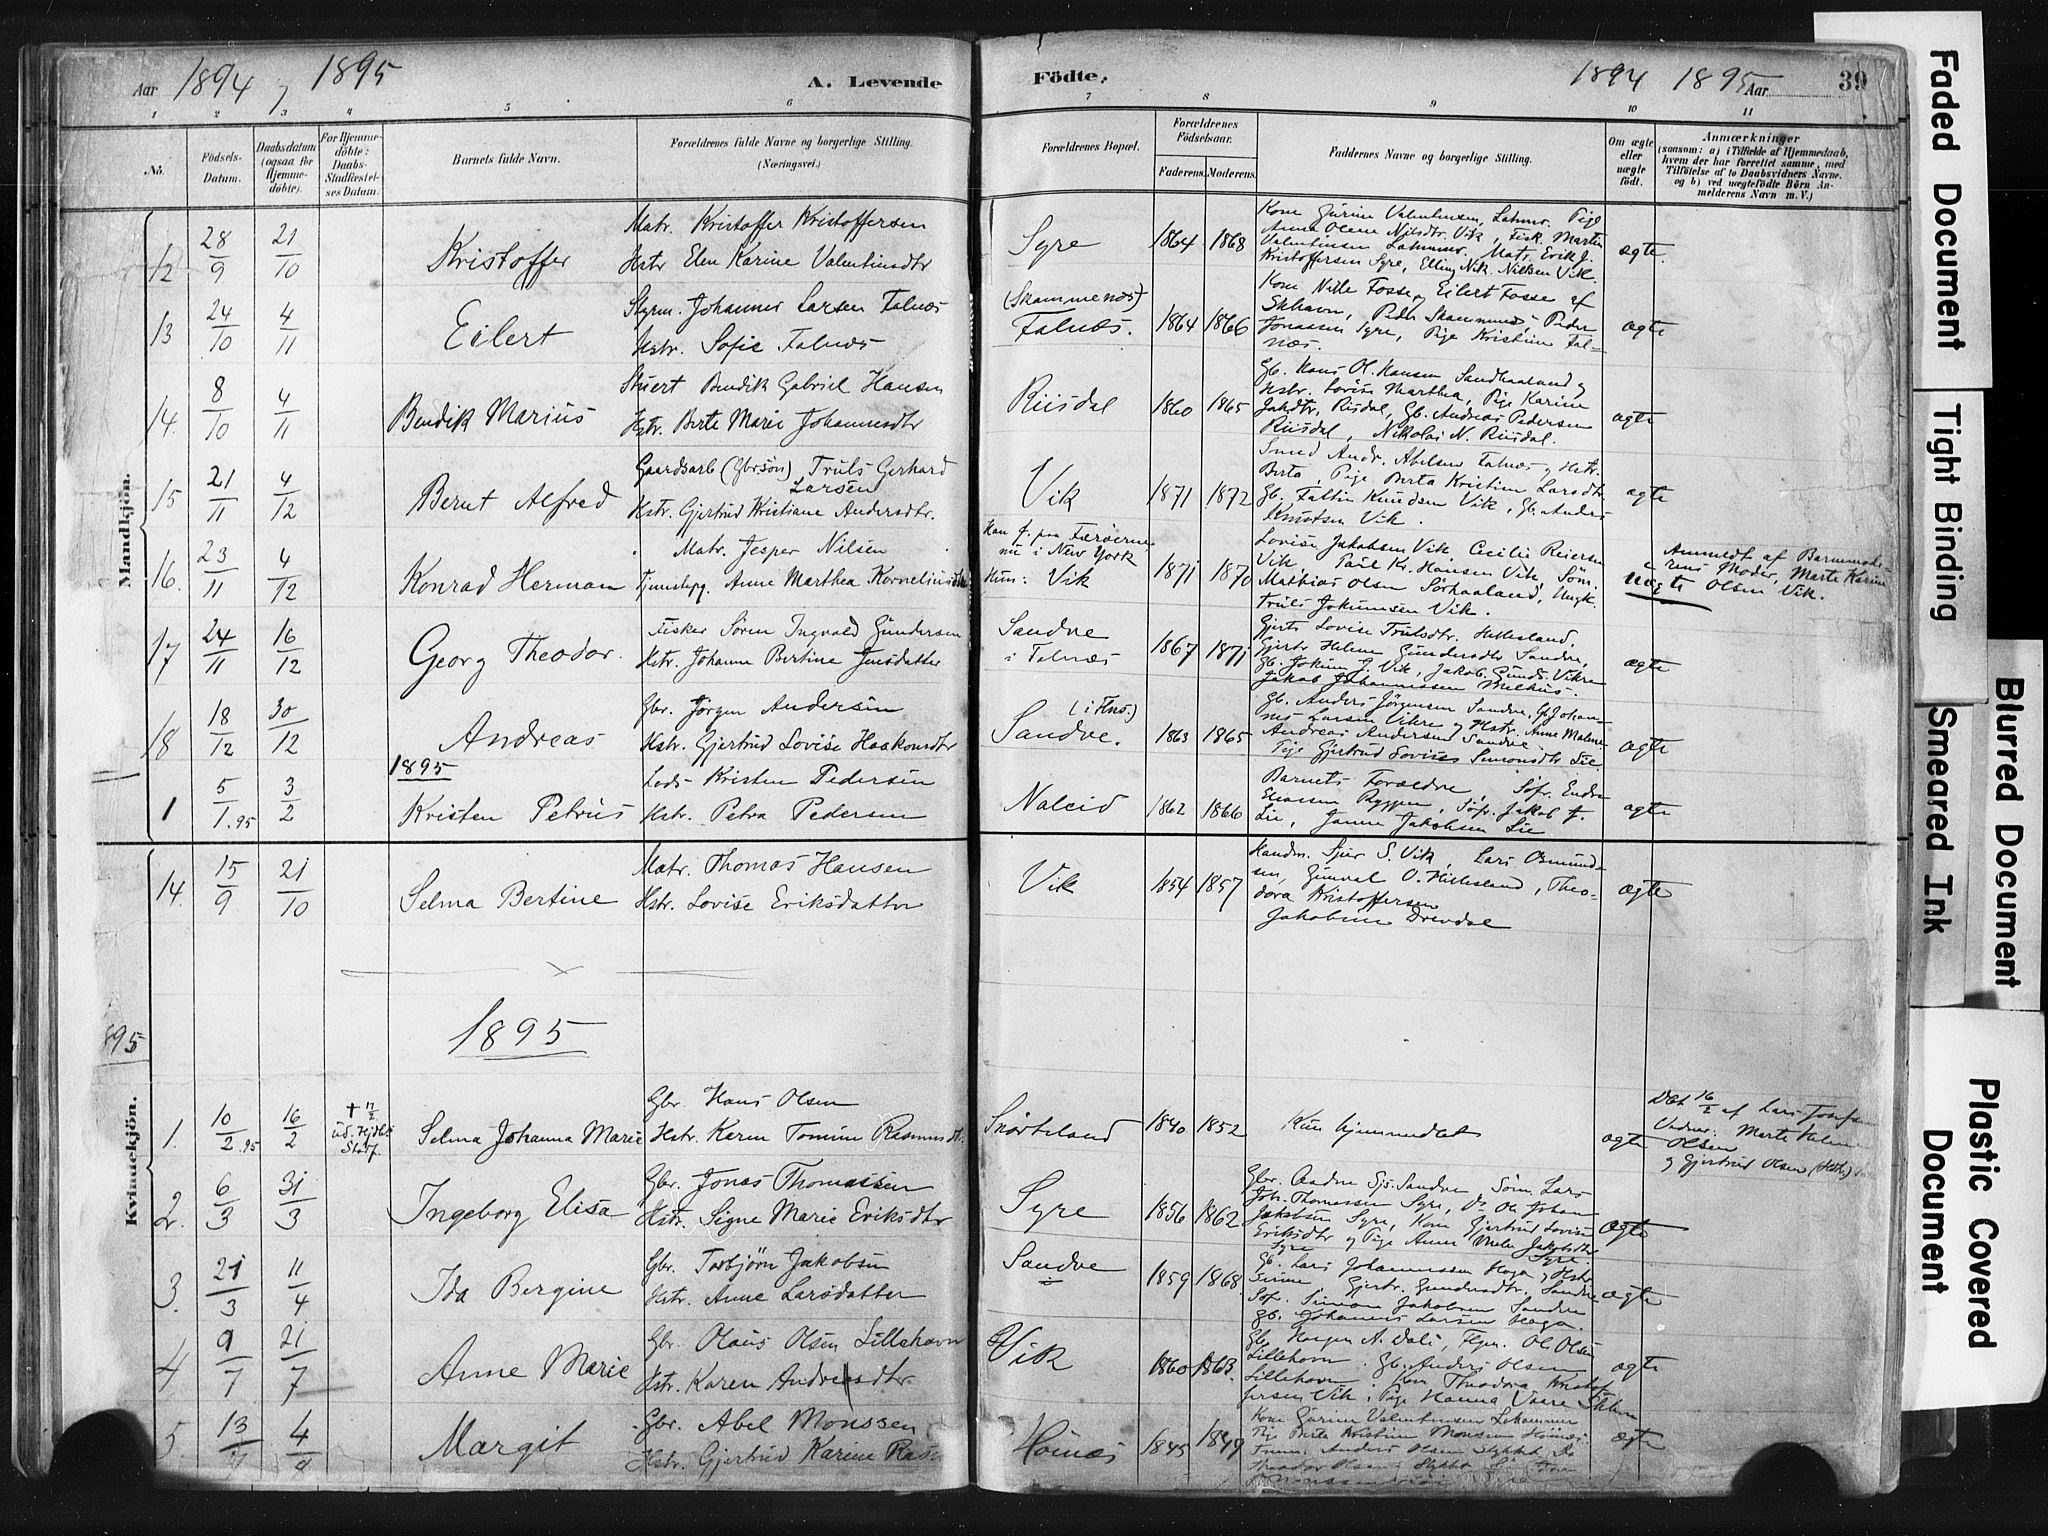 Aar 1894, 1895
A. Levende
Födte,
1894 1895 Aar
39
1 2 3 4 5 6 7 8 9 10 11
No.
Födsels-Datum.
Daabsdatum (ogsaa för Hjemmedöbte).
For Hjemmedöbte: Daabs-Stadfæstelses Datum.
Barnets fulde Navn.
Forældrenes fulde Navne og borgerlige Stilling. (Næringsvei.)
Forældrenes Bopæl.
Forældrenes Födselsaar.
Faderens. Moderens.
Faddernes Navne og borgerlige Stilling.
Om ægte eller uægte födt.
Anmærkninger
(saasom: a) i Tilfælde af Hjemmedaab,
hvem der har forrettet samme, med
Tilföielse af to Daabsvidners Navne.
og b) ved uægtefödte Börn An-
melderens Navn m. V.)
Mandkjön.
12 28/9 21/10 Kristoffer
Matr. Kristoffer Kristoffersen
Hstr Elen Karine Valentinsdtr
Syre 1864 1868
Kone Gurine Valentinsen, Pige
Anna Olene Nilsdtr. Vik, Fisk. Martin
Valentinsen Matr. Erik J.
Kristoffersen Syre, Elling Nik. Nielsen Vik.
ægte.
13 24/10 4/11 Eilert
Styrm. Johannes Larsen Falnæs
Hstr. Sofie Falnæs
(Skammenæs)
Falnæs. 1864 1866
Kone Nille Fosse, Eilert Fosse af
Skhavn, Peder Skammenæs, Peder
Jonassen Syre, Pige Kristine Fal-
næs.
ægte
14. 8/10 4/11 Bendik Marius
Stuert Bendik Gabriel Hansen
Hstr. Berte Marie Johannesdtr
Riisdal 1860 1865
Gb. Hans Ol. Hansen Sandhaaland og
Hstr. Lovise Marthea, Pige Karine
Jakdtr. Risdal, Gb. Andreas Pedersen
Riisdal, Nikolai N. Riisdal.
ægte
15 21/11 4/12 Bernt Alfred
Gaardsarb (Gbrsøn) Truls Gerhard
Larsen
Hstr. Gjertrud Kristiane Andersdtr.
Vik 1871 1872
Smed Andr. Abelsen Falnæs og Hstr.
Berta, Pige Berta Kristine Larsdtr,
Gb. Knudsen Vik, Gb. Anders
Knutsen Vik.
ægte
16. 23/11 4/12 Konrad Herman
Matr. Jesper Nilsen
Tjenstepg. Anne Marthea Korneliusdtr
Han f. paa Færøerne
nu i New York
Hun: Vik 1871 1870
Lovise Jakobsen Vik, Cecilie Reiersen
Vik, Paul Kr. Hansen Vik, Söm.
Mathias Olsen Sørhaaland, Ungk.
Truls Jokumsen Vik.
uægte
Anmeldt af Barnemode-
rens Moder, Marte Karine
Olsen Vik.
17 24/11 16/12 Georg Theodor.
Fisker Sören Ingvald Gundersen
Hstr. Johanne Bertine Jensdatter
Sandve
i Falnæs 1867 1871
Gjertr Lovise Trulsdtr. Hillesland,
Gjertr Helene Gundersdtr Sandve,
Gb. Jokum J. Vik, Jakob Gunds. Vikre
Jakob Johannessen Melhus.
ægte
18 18/12 30/12 Andreas
Gbr. Jörgen Andersen
Hstr. Gjertrud Lovise Haakonsdtr
(i Hus.)
Sandve. 1863 1865
Gb. Anders Jörgensen Sandve, Gb Johan-
nes Larsen Vikre og Hstr. Anne Malene
Andreas Andersen Sandve.
Pige Gjertrud Lovise Simonsdtr Lie
ægte
1895
1 5/1.95 3/2 Kristen Petrus
Lods Kristen Pedersen
Hstr. Petra Pedersen
Naleid 1862 1866
Barnets Forældre, Söfr. Endre
Eliassen Ryggen, Söfr. Jakob J.
Lie, Janne Jakobsen Lie
ægte
14. 15/9 21/10 Selma Bertine
Matr. Thomas Hansen
Hstr. Lovise Eriksdatter
Vik 1854 1857
Handm. Sjur S. Vik, Lars Osmund-
sen, Gunval O. Hillesland, Theo-
dora Kristoffersen
Jakobine Drevdal
ægte
895
1895
Kvindekjön.
1. 10/2.95 16/2
† 17/2
ud. Hjdb.
Stadf.
Selma Johanna Marie
Gbr. Hans Olsen
Hstr. Karen Tomine Rasmusdtr.
Snörteland 1840 1852
Kun hjemmedöbt
ægte
Döbt 16/2 af Lars Josefsen
Vidner: Marte Helene
Olsen
og Gjertrud Olsen
2. 6/3 31/3 Ingeborg Elisa
Gbr. Jonas Thomassen
Hstr. Signe Marie Eriksdtr
Syre 1856 1862
Gbr. Aadne Sjs. Sandve Söm. Lars
Joh. Thomassen Syre, Do Ole Johan
Jakobsen Syre, Kone Gjertrud Lovise
Eriksdtr og Pige Anne Jakobsdtr
Syre Syre.
ægte
3. 21/3 11/4 Ida Bergine
Gbr. Torbjörn Jakobsen
Hstr. Anne Larsdatter
Sandve 1859 1868
Gb. Lars Johannessen Haga og Hstr
Serine, Gjertr. Gundersdtr, Sandve
Söfr. Simon Jakobsen Sandve
Gb. Johannes Larsen Haga.
ægte
4. 9/7 21/7 Anne Marie
Gbr. Olaus Olsen Lillehavn
Hstr. Karen Andreasdtr
Vik 1860 1863
Gb. A. Dale, Ol. Olsen
Lillehavn, Gb. Anders Olsen
Lillehavn, Kone Theodora Kristof-
fersen Vik, Pige Hanna Vaare
ægte
5. 13 4 Margit
Gbr. Abel Monssen
Hstr. Gjertrud Karine
Höinæs 1845 1849
Kone Gurine Valentinsen
Pige Berte Kristine Monsen Höinæs.
Anders Olsen
ægte
Faded Document
Tight Binding
Blurred Document
Smeared Ink
Plastic Covered Document